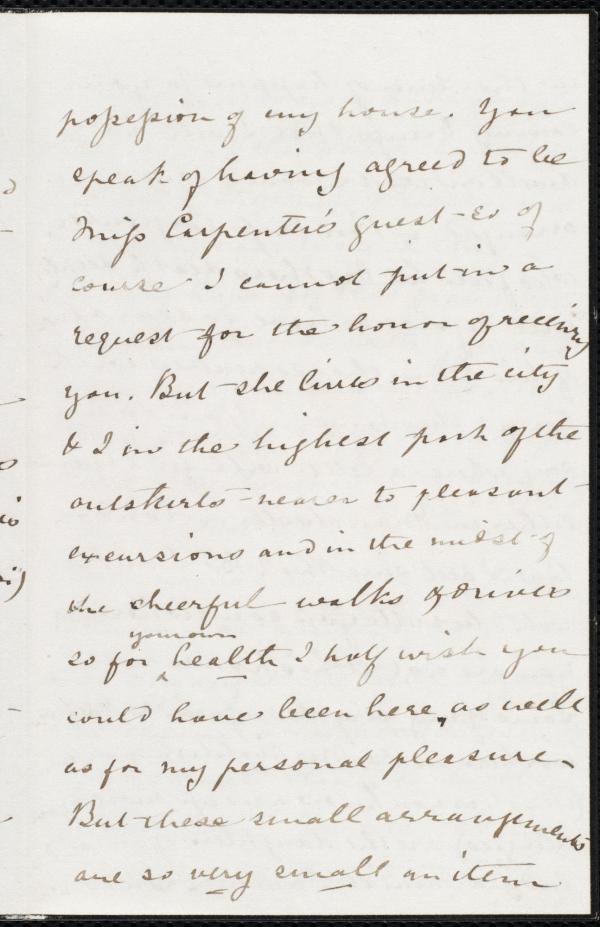 possession of my house. You
speak of having agreed to be
Miss Carpenter's guest - so of
course I cannot put in a
request for the honor of receiving
you. But she lives in the city
& I in the highest part of the
outskirts - nearer to pleasant
excursions and in the midst of
the cheerful walks & drives
your own
so for health I half wish you
could have been here, as well
as for my personal pleasure.
But these small arrangements
are so very small an item